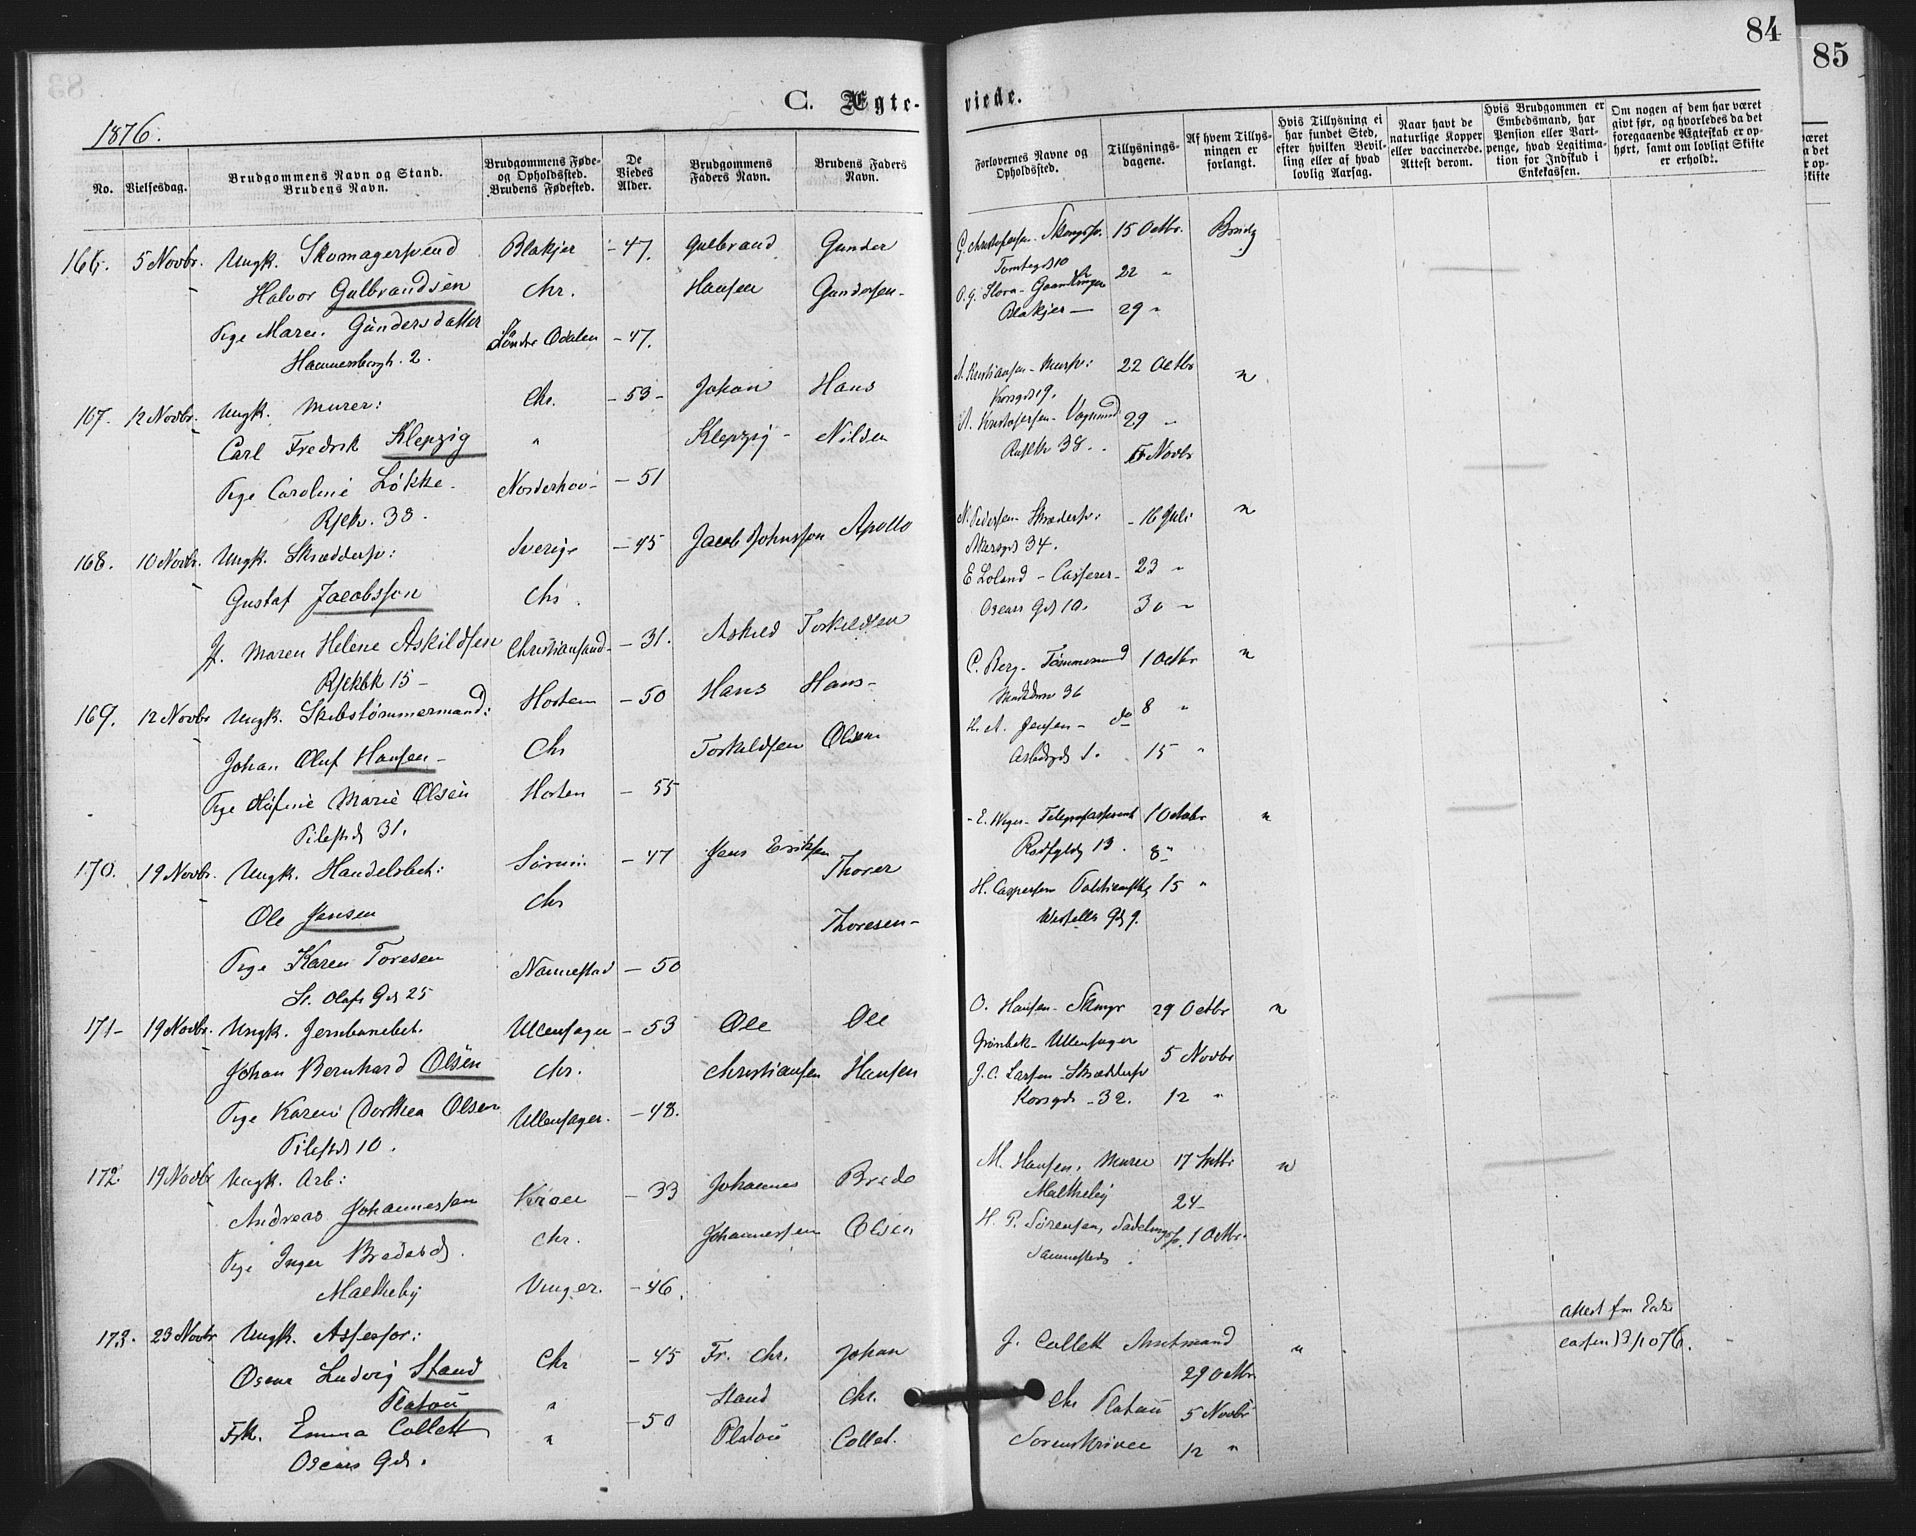 84
85
C. Ægte- viede.
1876.
No.
Vielsesdag.
Brudgommens Navn og Stand.
Brudens Navn.
Brudgommens Føde-
og Opholdssted.
Brudens Fødested.
De
Viedes
Alder.
Brudgommens
Faders Navn.
Brudens Faders
Navn.
Forlovernes Navne og
Opholdssted.
Tillysnings-
dagene.
Af hvem Tillys-
ningen er
forlangt.
Hvis Tillysning ei
har fundet Sted,
efter hvilken Bevil-
ling eller af hvad
lovlig Aarsag.
Naar havt de
naturlige Kopper
eller vaccinerede.
Attest derom.
Hvis Brudgommen er
Embedsmand, har
Pension eller Vart-
penge, hvad Legitima-
tion for Indskud i
Enkekassen.
Om nogen af dem har været
givt før, og hvorledes da det
foregaaende Ægteskab er op-
hørt, samt om lovligt Skifte
er erholdt.
166. 5 Novbr. Ungk. Skomagersvend Blakjer - 47. Gulbrand Gunder
Halvor Gulbrandsen Chr. Hansen Gundersen-
Pige Maren Gundersdatter Søndre Odalen - 47.
Hammersborgk. 2.
G. Christophersen 15 Octbr. Brudg
Tomtegd 10 22 "
Blakjer 29 "
167. 12 Novbr. Ungk. Murer: Chr. - 53 - Johan Hans
Carl Fredrik Klepzig " Klepzig - Nilsen
Pige Caroline Løkke Norderhov - 51
38.
A. Kristiansen - 22 Octbr "
Korsgd 19.
29 "
38. 5 Novbr
168. 10 Novbr. Ungk. Skrædersv: Sverige - 45 Jacob Johnsson Apollo
Gustaf Jacobsson Chr.
P. Maren Helene Askildsen Christiansand - 31. Askild Torkildsen
15 -
N. Pedersen - Skrædersv: - 16 Juli "
Akersgd 34.
E Loland - Casserer - 23 "
Oscars Gd 10. 30 "
169. 12 Novbr Ungk. Skibstømmermand: Horten - 50 Hans Hans-
Johan Oluf Hansen - Chr Torkildsen Olsen
Pige Marie Olsen Horten - 55
Pilestd 31.
C. Berg - Tømmermand 1 Octbr "
36
H. A. Jensen - do 8 "
1. 15 "
170. 19 Novbr. Ungk. Handelsbet: Sørum - 47 Jens Eriksen Thorer
Ole Jensen Chr Thoresen -
Pige Karen Toresen Nannestad - 50
St. Olafs Gd 25
1 Octobr "
13. 8 "
H. Caspersen 15 "
Wessells Gd 9.
171 - 19 Novbr. Ungk. Jernbanebet. Ullensager - 53 Ole Ole
Johan Bernhard Olsen Chr. Christiansen Hansen
Pige Karen Dorthea Olsen Ullensager. - 48.
Pilestd 10.
O. Hansen - 29 Octbr "
Grønbek - Ullensager
5 Novbr
J. C. Larsen - Skræddersv
Korsgd - 32. 12 "
172. 19 Novbr Ungk. Arb: - 33 Johannes Brede
Andreas Johannessen Chr. Johannessen Olsen
Pige Inger Bredesd. Vinger. - 46.
Maltheby
M. Hansen, Murer 17 Septbr "
Maltheby 24 -
H. P. Sørensen, 1 Octbr.
173. 23 Novbr Ungk. Assessor: Chr - 45 Fr. Chr. Johan
Oscar Ludvig Stoud " Stoud Chr.
Platou
Frk. Emma Collett " - 50 Platou Collet.
Oscars Gd.
J. Collett Amtmand "
29 Octbr
Chr Platou 5 Novbr
Sorenskriver 12 "
Attest fra Enke
cassen 13/10 76.